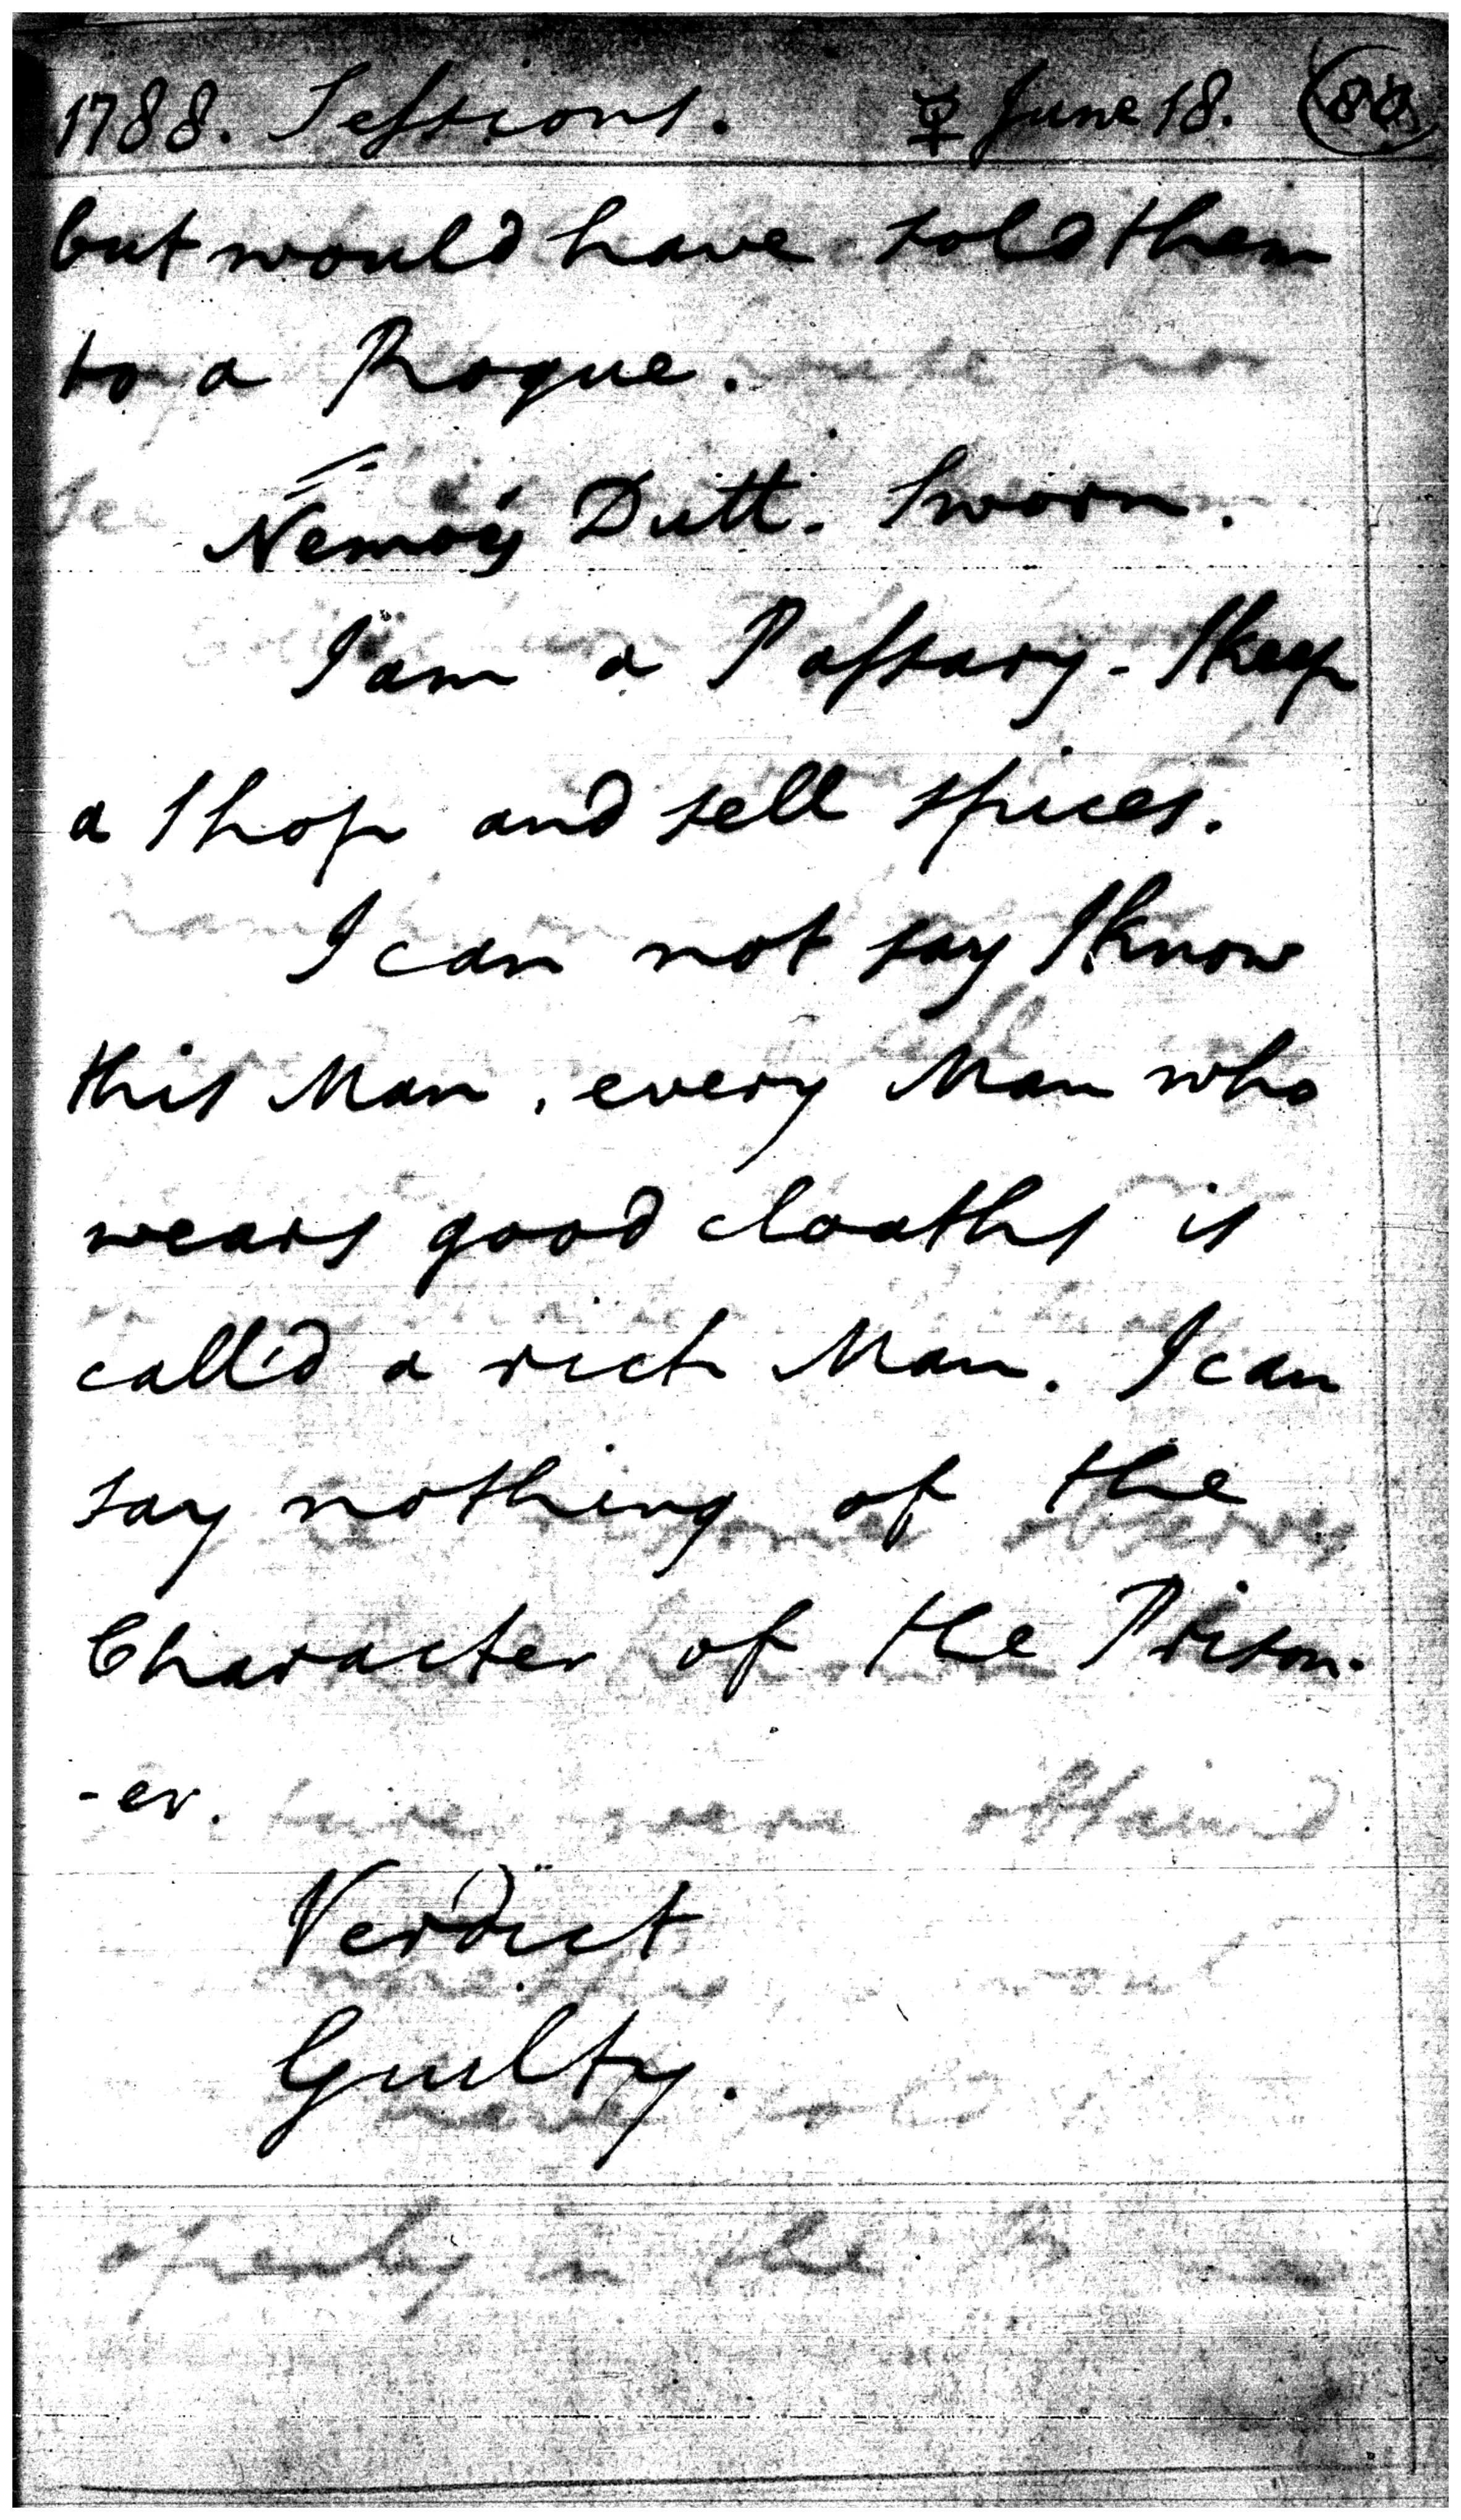 1788. Sessions. ♀ June 18.
but would have sold them
to a Rogue.
Nemoy Dutt. Sworn.
I am a Passary - I keep
a Shop and sell spices.
I can not say I know
this Man, every Man who
wears good cloaths is
call'd a rich Man. I can
say nothing of the
Character of the Prison-
-er.
Verdict
Guilty.